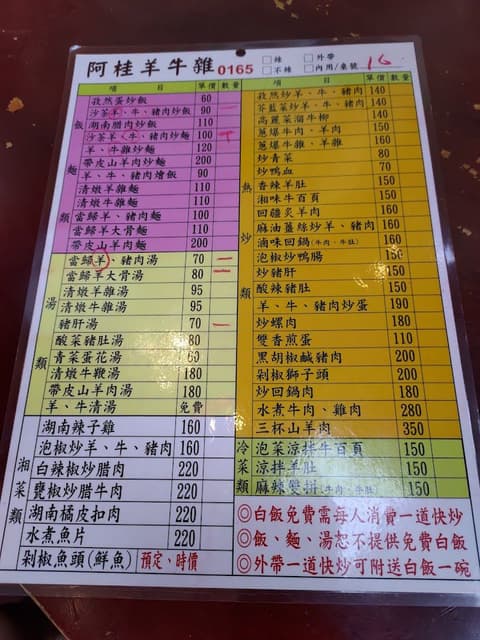 阿桂羊牛雜 0165 □辣 □外帶
□不辣 □內用/桌號 16
項 目 單價 數量
飯
孜然蛋炒飯 60
沙茶羊、牛、豬肉炒飯 90
湖南腊肉炒飯 110
麵類
沙茶羊、牛、豬肉炒麵 100
羊、牛雜炒麵 120
帶皮山羊肉炒麵 200
羊、牛、豬肉燴飯 90
清燉羊雜麵 110
清燉牛雜麵 110
當歸羊、豬肉麵 100
當歸羊大骨麵 110
帶皮山羊肉麵 200
湯類
當歸羊、豬肉湯 70 一
當歸羊大骨湯 80 二
清燉羊雜湯 95
清燉牛雜湯 95
豬肝湯 70 一
酸菜豬肚湯 80
青菜蛋花湯 60
清燉牛鞭湯 180
帶皮山羊肉湯 180
羊、牛清湯 免費
湘菜類
湖南辣子雞 160
泡椒炒羊、牛、豬肉 160
白辣椒炒腊肉 220
甕椒炒腊牛肉 220
湖南橘皮扣肉 220
水煮魚片 220
剁椒魚頭(鮮魚) 預定、時價
項 目 單價 數量
熱炒類
孜然炒羊、牛、豬肉 140
芥藍菜炒羊、牛、豬肉 140
高麗菜溜牛柳 140
蔥爆牛肉、羊肉 150
蔥爆牛雜、羊雜 160
炒青菜 80
炒鴨血 70
香辣羊肚 150
湘味牛百頁 150
回疆炙羊肉 160
麻油薑絲炒羊、豬肉 160
滷味回鍋(牛肉、牛肚) 160
泡椒炒鴨腸 150
炒豬肝 150
酸辣豬肚 150
羊、牛、豬肉炒蛋 190
炒螺肉 180
雙香煎蛋 110
黑胡椒鹹豬肉 200
剁椒獅子頭 200
炒回鍋肉 180
水煮牛肉、雞肉 280
三杯山羊肉 350
冷菜類
泡菜涼拌牛百頁 150
涼拌羊肚 150
麻辣雙拼(牛肉、牛肚) 150
◎白飯免費需每人消費一道快炒
◎飯、麵、湯恕不提供免費白飯
◎外帶一道快炒可附送白飯一碗